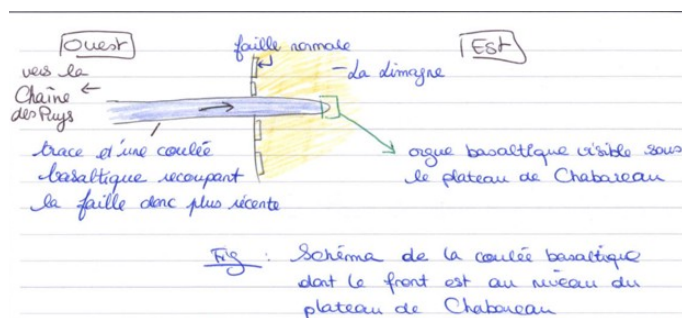 Ouest
faille normale
Est
vers la
Chaîne
des Puys
- La Limagne
trace d'une coulée
basaltique recoupant
la faille donc plus récente
orgue basaltique visible sous
le plateau de Chabareau
Fig : Schéma de la coulée basaltique
dont le front est au niveau du
plateau de Chabareau